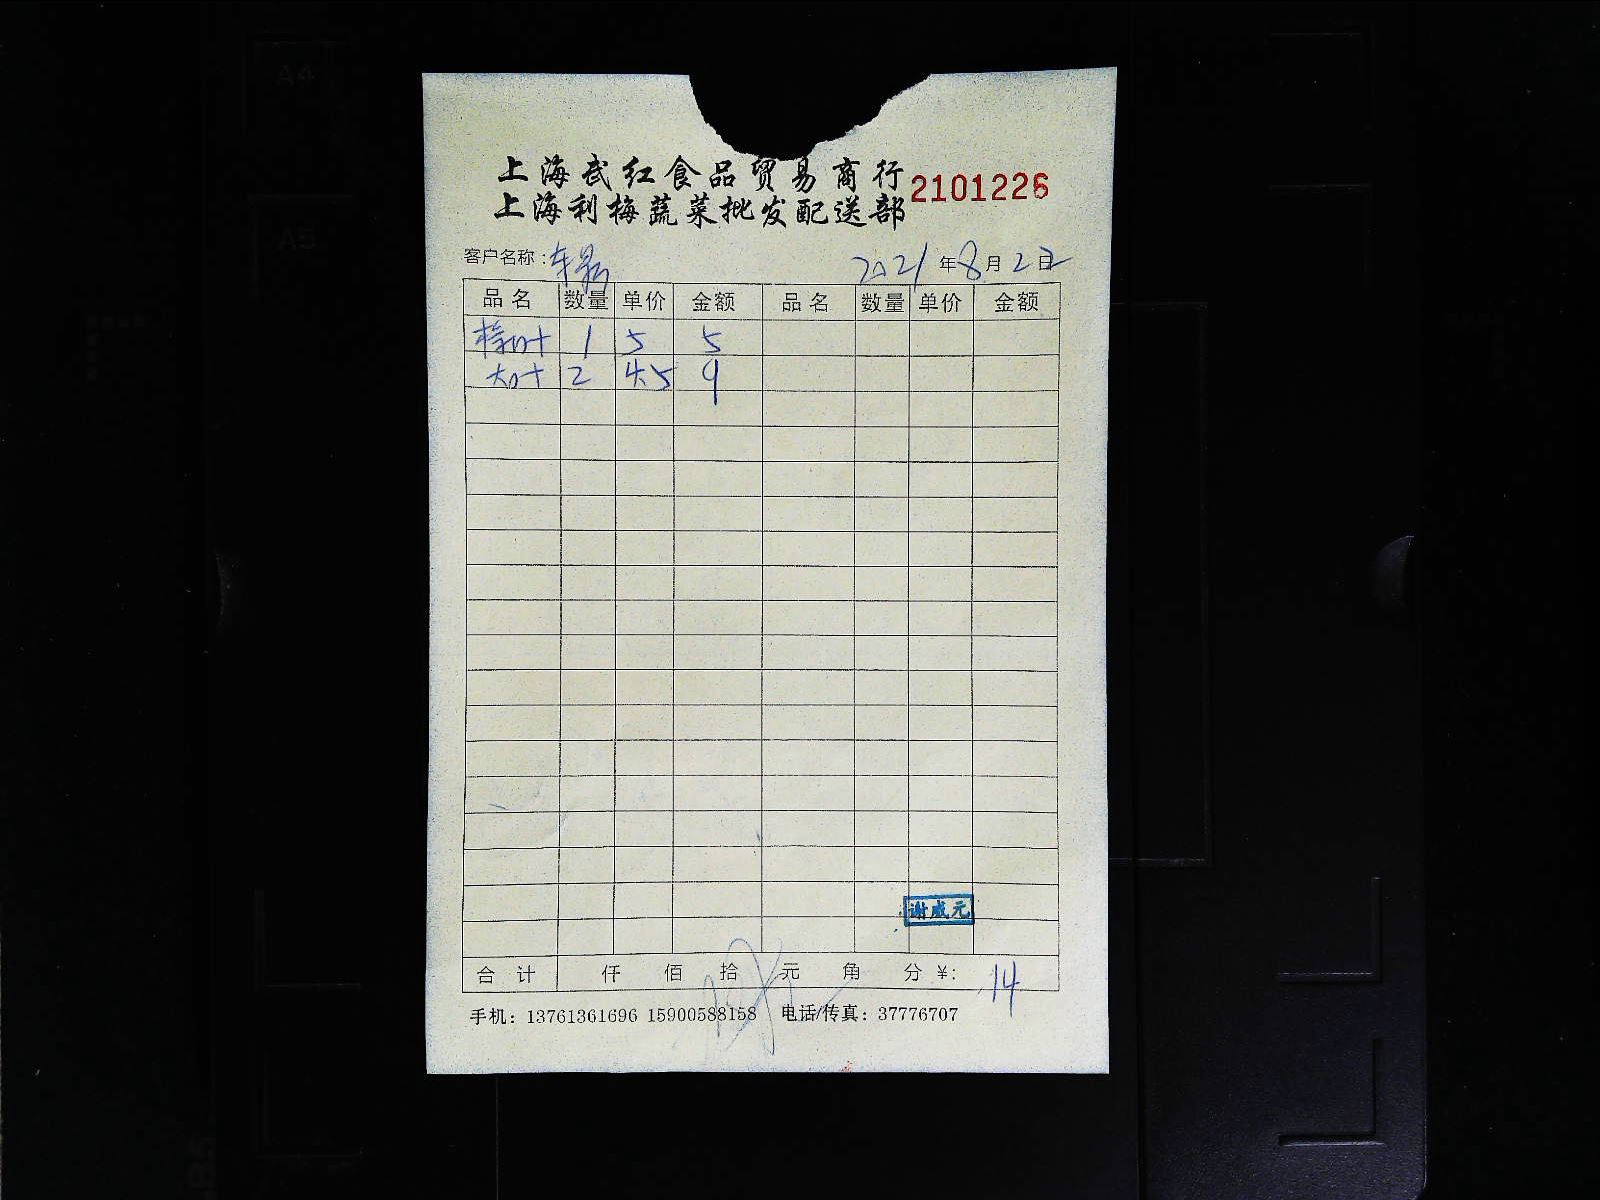 上海武红食品贸易商行
2101226
上海利梅蔬菜批发配送部
客户名称: 2021年8月2日
品名 数量 单价 金额 品名 数量 单价 金额
1 5 5
大叶 2 4.5 9
谢威元
合计 仟 佰 拾 元 角 分 ¥: 14
手机: 13761361696 15900588158 电话/传真: 37776707
A4
A5